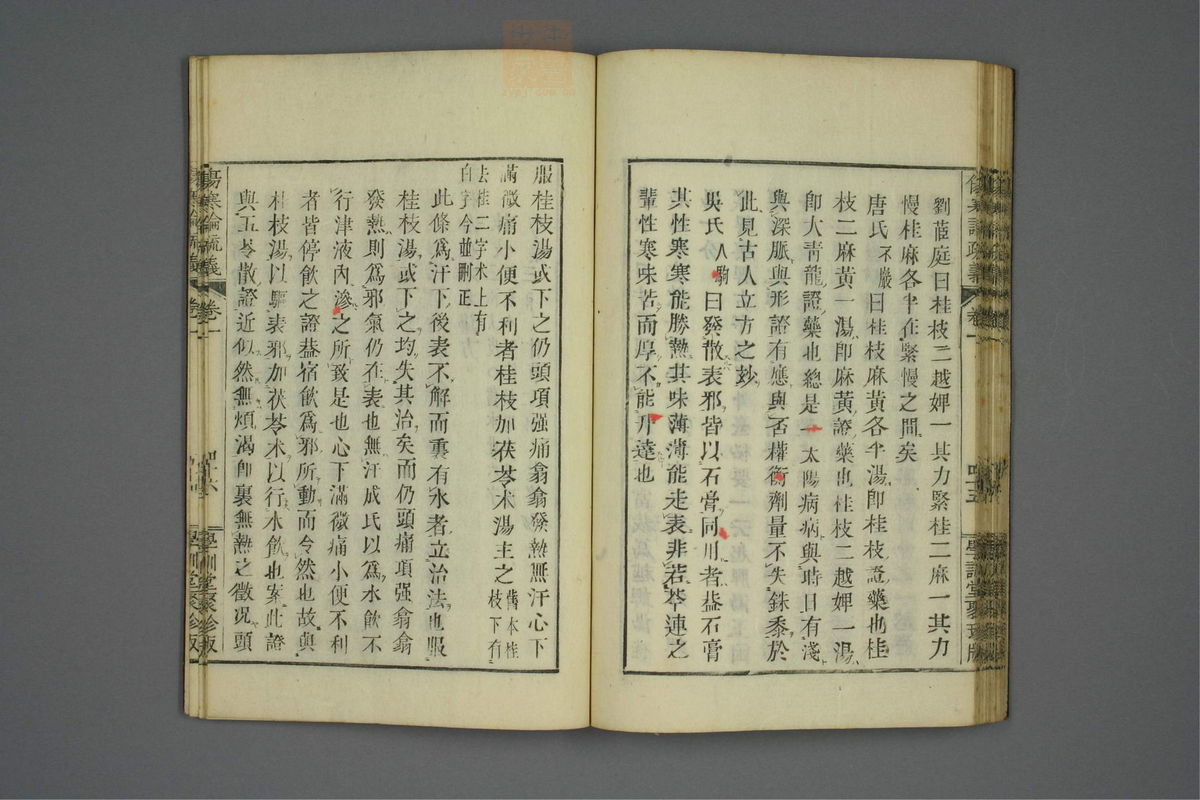 劉茝庭曰桂枝二越婢一其力緊桂二麻一其力
慢桂麻各半在緊慢之間矣
唐氏不巖曰桂枝麻黃各半湯卽桂枝證藥也桂
枝二麻黃一湯卽麻黃證藥也桂枝二越婢一湯
卽大靑龍證藥也總是一太陽病病與時日有淺
與深脈與形證有應與否權衡劑量不失銖黍於
此見古人立方之玅
吳氏人駒曰發散表邪皆以石膏同用者葢石膏
其性寒寒能勝熱其味薄薄能走表非若芩連之
輩性寒味苦而厚不能升達也
傷寒論疏義
卷一
學訓堂聚珍版
服桂枝湯或下之仍頭項强痛翕翕發熱無汗心下
滿微痛小便不利者桂枝加茯苓朮湯主之舊本桂枝下有
去桂二字朮上有
白字今並刪正
此條爲汗下後表不解而裏有水者立治法也服
桂枝湯或下之均失其治矣而仍頭痛項强翕翕
發熱則爲邪氣仍在表也無汗成氏以爲水飮不
行津液內滲之所致是也心下滿微痛小便不利
者皆停飮之證葢宿飮爲邪所動而令然也故與
桂枝湯以驅表邪加茯苓朮以行水飮也案此證
與五苓散證近似然無煩渴卽裏無熱之徵况頭
傷寒論疏義
卷一
學訓堂聚珍版